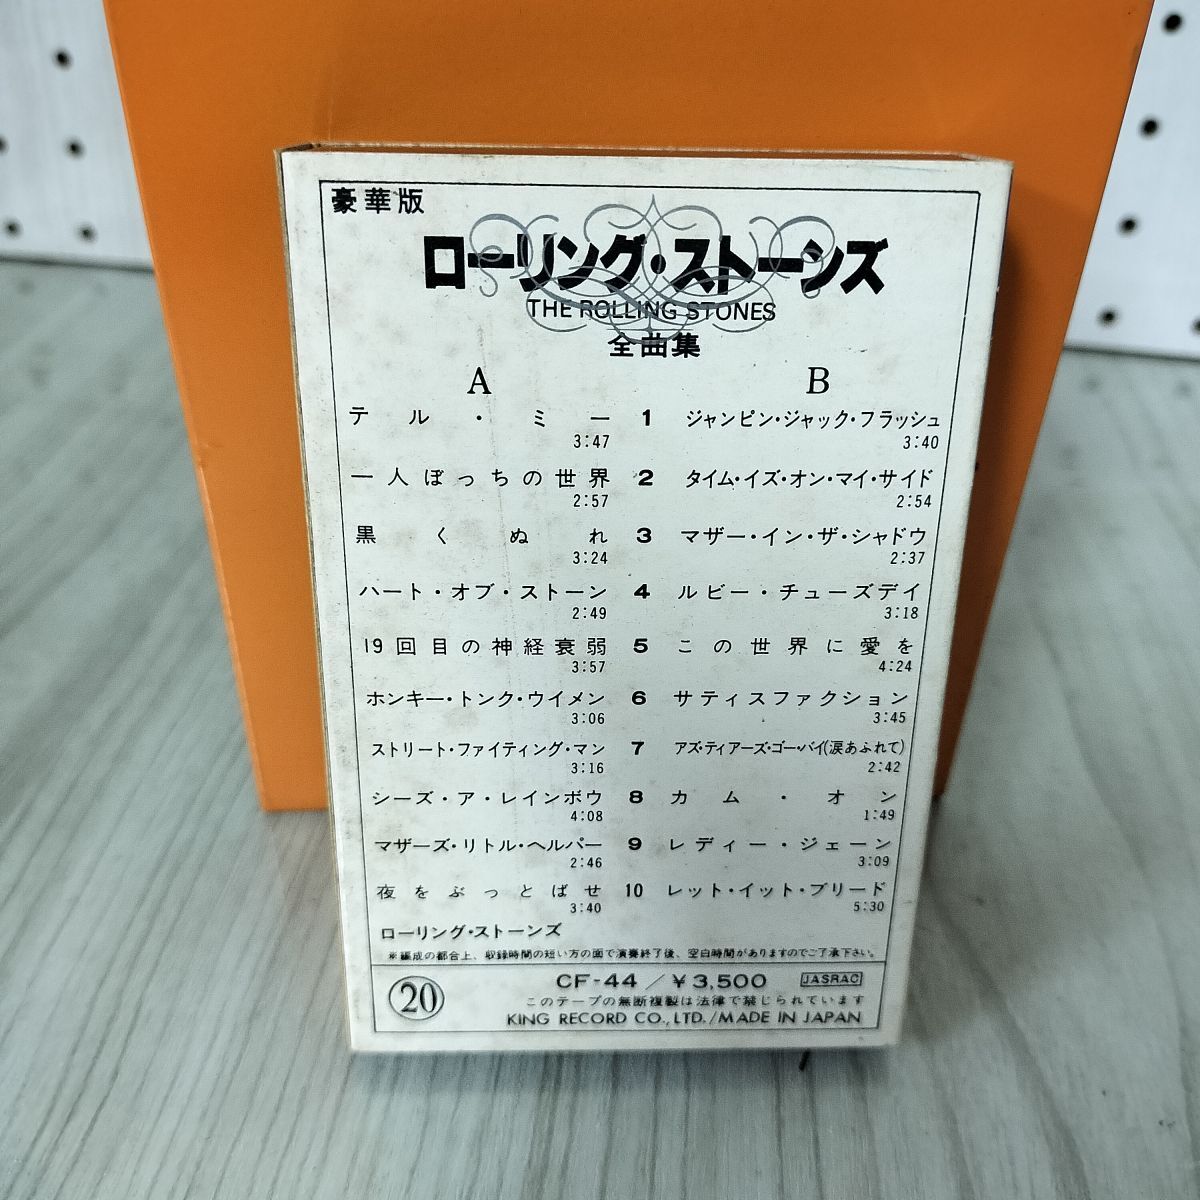 豪華版
ローリング・ストーンズ
THE ROLLING STONES
全曲集
A B
テル・ミー 1 ジャンピン・ジャック・フラッシュ
3:47 3:40
一人ぼっちの世界 2 タイム・イズ・オン・マイ・サイド
2:57 2:54
黒くぬれ 3 マザー・イン・ザ・シャドウ
3:24 2:37
ハート・オブ・ストーン 4 ルビー・チューズデイ
2:49 3:18
19回目の神経衰弱 5 この世界に愛を
3:57 4:24
ホンキー・トンク・ウイメン 6 サティスファクション
3:06 3:45
ストリート・ファイティング・マン 7 アズ・ティアーズ・ゴー・バイ(涙あふれて)
3:16 2:42
シーズ・ア・レインボウ 8 カム・オン
4:08 1:49
マザーズ・リトル・ヘルパー 9 レディー・ジェーン
2:46 3:09
夜をぶっとばせ 10 レット・イット・ブリード
3:40 5:30
ローリング・ストーンズ
※編成の都合上、収録時間の短い方の面で演奏終了後、空白時間がありますのでご了承下さい。
20 CF-44/¥3,500 JASRAC
このテープの無断複製は法律で禁じられています
KING RECORD CO.,LTD./MADE IN JAPAN